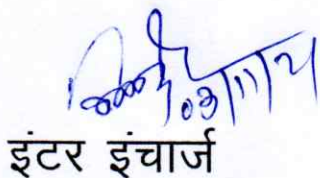 03/11/21
इंटर इंचार्ज